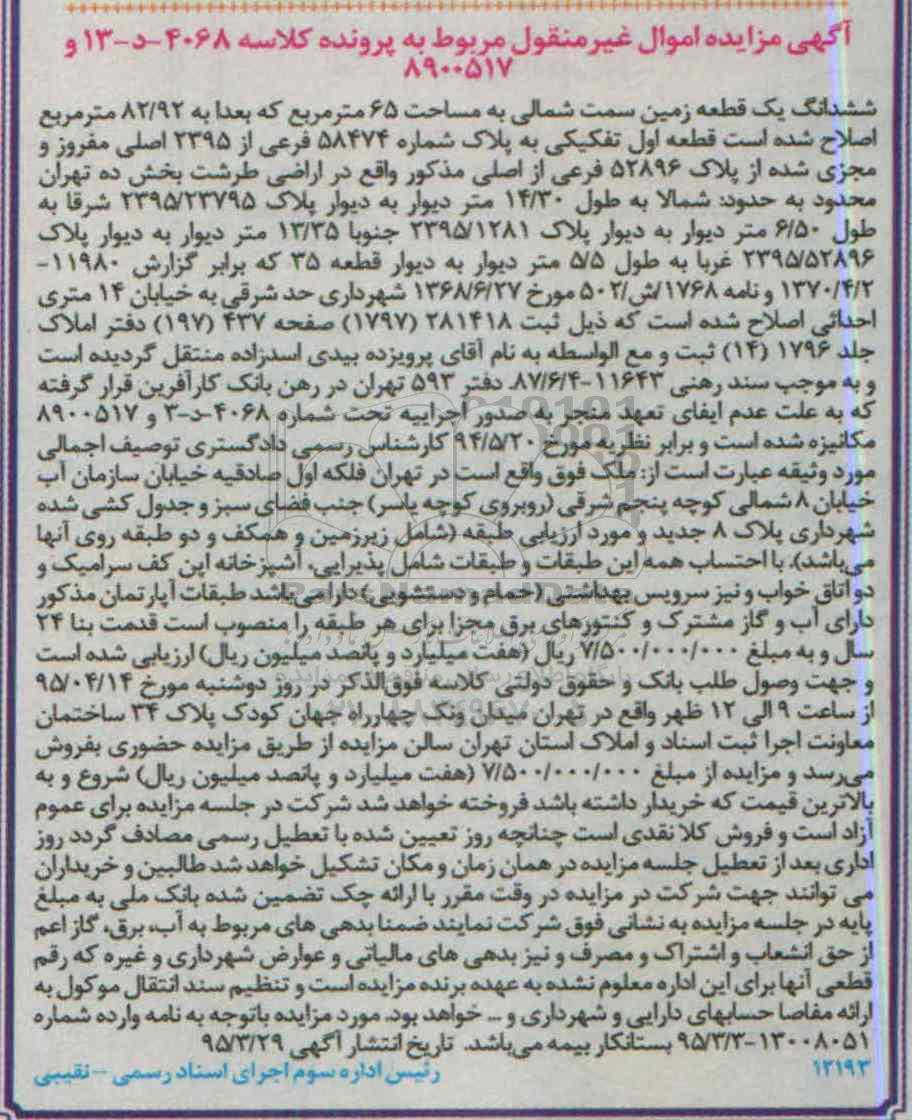 آگهی مزایده اموال غیرمنقول مربوط به پرونده کلاسه ۴۰۶۸-د-۱۳ و
۸۹۰۰۵۱۷
ششدانگ یک قطعه زمین سمت شمالی به مساحت ۶۵ مترمربع که بعدا به ۸۲/۹۲ مترمربع
اصلاح شده است قطعه اول تفکیکی به پلاک شماره ۵۸۴۷۴ فرعی از ۲۳۹۵ اصلی مفروز و
مجزی شده از پلاک ۵۲۸۹۶ فرعی از اصلی مذکور واقع در اراضی طرشت بخش ده تهران
محدود به حدود: شمالا به طول ۱۴/۳۰ متر دیوار به دیوار پلاک ۲۳۹۵/۲۳۷۹۵ شرقا به
طول ۶/۵۰ متر دیوار به دیوار پلاک ۲۳۹۵/۱۲۸۱ جنوبا ۱۳/۳۵ متر دیوار به دیوار پلاک
۲۳۹۵/۵۲۸۹۶ غربا به طول ۵/۵ متر دیوار به دیوار قطعه ۳۵ که برابر گزارش ۱۱۹۸۰-
۱۳۷۰/۴/۲ و نامه ۱۷۶۸/ش/۵۰۲ مورخ ۱۳۶۸/۶/۲۷ شهرداری حد شرقی به خیابان ۱۴ متری
احداثی اصلاح شده است که ذیل ثبت ۲۸۱۴۱۸ (۱۷۹۷) صفحه ۴۳۷ (۱۹۷) دفتر املاک
جلد ۱۷۹۶ (۱۴) ثبت و مع الواسطه به نام آقای پرویزده بیدی اسدزاده منتقل گردیده است
و به موجب سند رهنی ۱۱۶۴۳-۸۷/۶/۴ دفتر ۵۹۳ تهران در رهن بانک کارآفرین قرار گرفته
که به علت عدم ایفای تعهد منجر به صدور اجراییه تحت شماره ۴۰۶۸-د-۳ و ۸۹۰۰۵۱۷
مکانیزه شده است و برابر نظریه مورخ ۹۴/۵/۲۰ کارشناس رسمی دادگستری توصیف اجمالی
مورد وثیقه عبارت است از: ملک فوق واقع است در تهران فلکه اول صادقیه خیابان سازمان آب
خیابان ۸ شمالی کوچه پنجم شرقی (روبروی کوچه یاسر) جنب فضای سبز و جدول کشی شده
شهرداری پلاک ۸ جدید و مورد ارزیابی طبقه (شامل زیرزمین و همکف و دو طبقه روی آنها
می‌باشد). با احتساب همه این طبقات و طبقات شامل پذیرایی، آشپزخانه اپن کف سرامیک و
دو اتاق خواب و نیز سرویس بهداشتی (حمام و دستشویی) دارا می‌باشد طبقات آپارتمان مذکور
دارای آب و گاز مشترک و کنتورهای برق مجزا برای هر طبقه را منصوب است قدمت بنا ۲۴
سال و به مبلغ ۷/۵۰۰/۰۰۰/۰۰۰ ریال (هفت میلیارد و پانصد میلیون ریال) ارزیابی شده است
و جهت وصول طلب بانک و حقوق دولتی کلاسه فوق‌الذکر در روز دوشنبه مورخ ۹۵/۰۴/۱۴
از ساعت ۹ الی ۱۲ ظهر واقع در تهران میدان ونک چهارراه جهان کودک پلاک ۳۴ ساختمان
معاونت اجرا ثبت اسناد و املاک استان تهران سالن مزایده از طریق مزایده حضوری بفروش
می‌رسد و مزایده از مبلغ ۷/۵۰۰/۰۰۰/۰۰۰ (هفت میلیارد و پانصد میلیون ریال) شروع و به
بالاترین قیمت که خریدار داشته باشد فروخته خواهد شد شرکت در جلسه مزایده برای عموم
آزاد است و فروش کلا نقدی است چنانچه روز تعیین شده با تعطیل رسمی مصادف گردد روز
اداری بعد از تعطیل جلسه مزایده در همان زمان و مکان تشکیل خواهد شد طالبین و خریداران
می توانند جهت شرکت در مزایده در وقت مقرر با ارائه چک تضمین شده بانک ملی به مبلغ
پایه در جلسه مزایده به نشانی فوق شرکت نمایند ضمنا بدهی های مربوط به آب، برق، گاز اعم
از حق انشعاب و اشتراک و مصرف و نیز بدهی های مالیاتی و عوارض شهرداری و غیره که رقم
قطعی آنها برای این اداره معلوم نشده به عهده برنده مزایده است و تنظیم سند انتقال موکول به
ارائه مفاصا حسابهای دارایی و شهرداری و ... خواهد بود. مورد مزایده باتوجه به نامه وارده شماره
۱۳۰۰۸۰۵۱-۹۵/۳/۳ بستانکار بیمه می‌باشد. تاریخ انتشار آگهی ۹۵/۳/۲۹
۱۲۱۹۳ رئیس اداره سوم اجرای اسناد رسمی - نقیبی